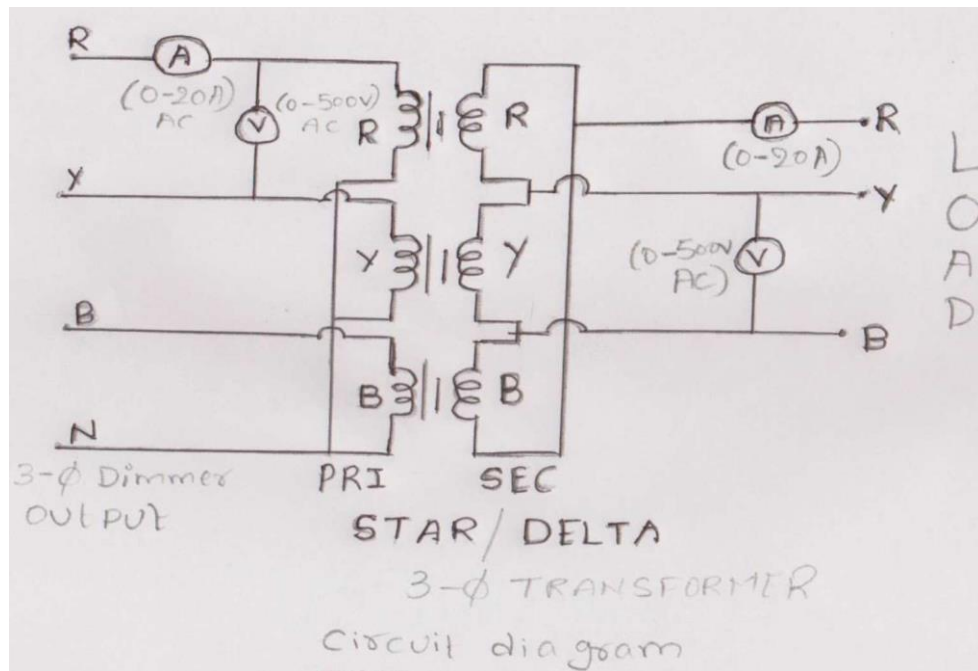 R A
(0-20A)
AC
V (0-500V)
AC
R R
A R
(0-20A)
Y
Y Y
Y
(0-500V
AC)
V
B
B B
B
N
LOAD
3-φ Dimmer
OUTPUT
PRI SEC
STAR/DELTA
3-φ TRANSFORMER
Circuit diagram